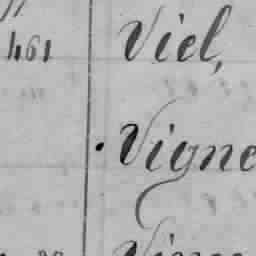 461 Viel,
Vigne